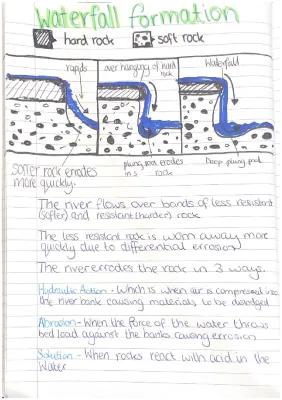 Waterfall formation
hard rock soft rock
rapids
over hanging of hard
rock
Waterfall
Softer rock erodes
more quickly.
plung pool erodes
in s rock
Deep plung pool
The river flows over bands of less resistant
(softer) and resistant (harder) rock
The less resistant rock is worn away more
quickly due to differential erosion
The river errodes the rock in 3 ways.
Hydraulic Action - Which is when air is compressed into
the river bank causing materials to be dislodged
Abrasion - When the force of the water throws
bed load against the banks causing erosion
Solution - When rocks react with acid in the
Water